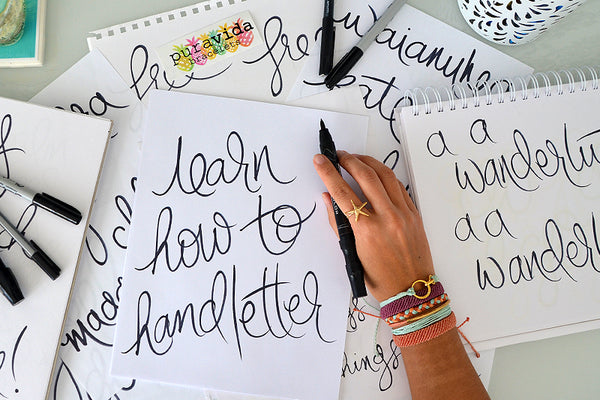 puravida
bracelets
free
learn
how to
handletter
a a
wanderlu
a a
wander
made
things